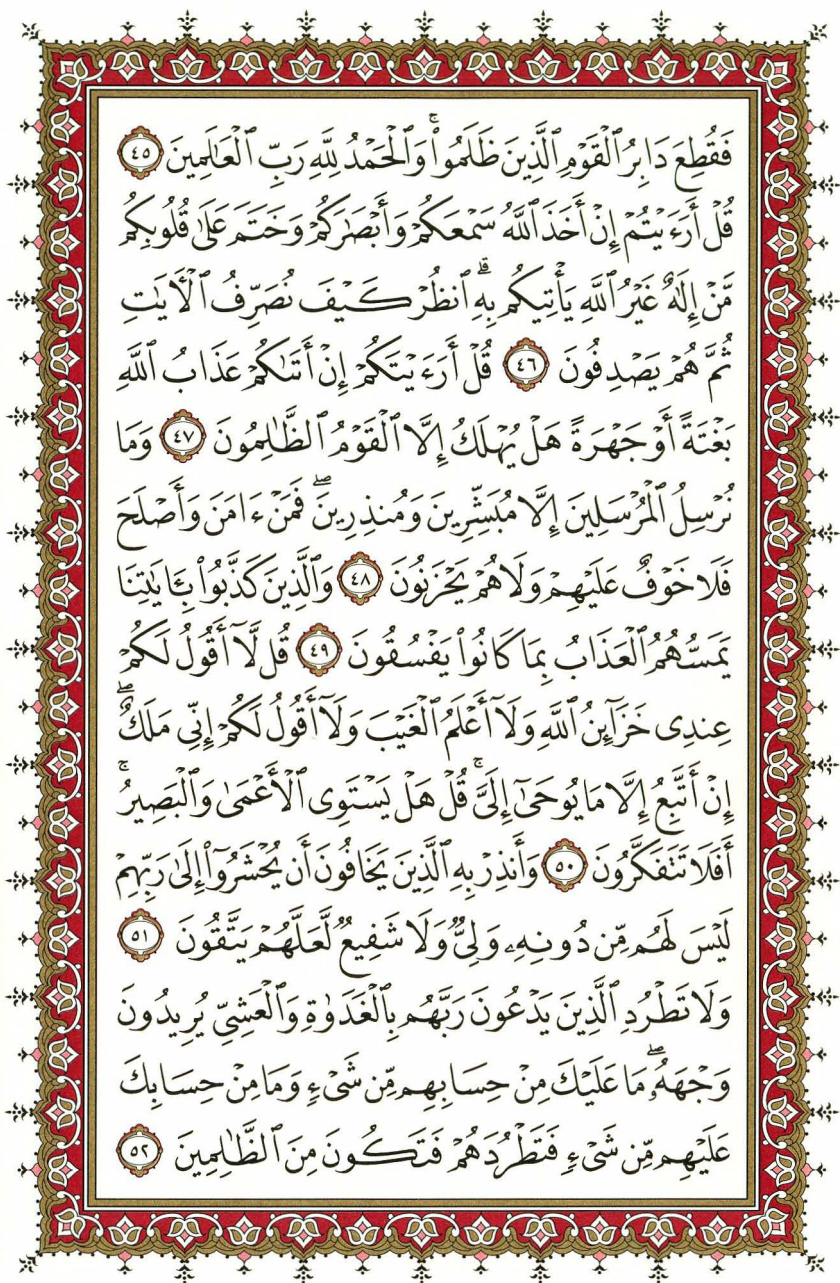 فَقُطِعَ دَابِرُ ٱلْقَوْمِ ٱلَّذِينَ ظَلَمُوا۟ ۚ وَٱلْحَمْدُ لِلَّهِ رَبِّ ٱلْعَـٰلَمِينَ ٤٥
قُلْ أَرَءَيْتُمْ إِنْ أَخَذَ ٱللَّهُ سَمْعَكُمْ وَأَبْصَـٰرَكُمْ وَخَتَمَ عَلَىٰ قُلُوبِكُم
مَّنْ إِلَـٰهٌ غَيْرُ ٱللَّهِ يَأْتِيكُم بِهِ ۗ ٱنظُرْ كَيْفَ نُصَرِّفُ ٱلْـَٔايَـٰتِ
ثُمَّ هُمْ يَصْدِفُونَ ٤٦ قُلْ أَرَءَيْتَكُمْ إِنْ أَتَىٰكُمْ عَذَابُ ٱللَّهِ
بَغْتَةً أَوْ جَهْرَةً هَلْ يُهْلَكُ إِلَّا ٱلْقَوْمُ ٱلظَّـٰلِمُونَ ٤٧ وَمَا
نُرْسِلُ ٱلْمُرْسَلِينَ إِلَّا مُبَشِّرِينَ وَمُنذِرِينَ ۖ فَمَنْ ءَامَنَ وَأَصْلَحَ
فَلَا خَوْفٌ عَلَيْهِمْ وَلَا هُمْ يَحْزَنُونَ ٤٨ وَٱلَّذِينَ كَذَّبُوا۟ بِـَٔايَـٰتِنَا
يَمَسُّهُمُ ٱلْعَذَابُ بِمَا كَانُوا۟ يَفْسُقُونَ ٤٩ قُل لَّآ أَقُولُ لَكُمْ
عِندِى خَزَآئِنُ ٱللَّهِ وَلَآ أَعْلَمُ ٱلْغَيْبَ وَلَآ أَقُولُ لَكُمْ إِنِّى مَلَكٌ ۖ
إِنْ أَتَّبِعُ إِلَّا مَا يُوحَىٰٓ إِلَىَّ ۚ قُلْ هَلْ يَسْتَوِى ٱلْأَعْمَىٰ وَٱلْبَصِيرُ ۚ
أَفَلَا تَتَفَكَّرُونَ ٥٠ وَأَنذِرْ بِهِ ٱلَّذِينَ يَخَافُونَ أَن يُحْشَرُوٓا۟ إِلَىٰ رَبِّهِمْ
لَيْسَ لَهُم مِّن دُونِهِۦ وَلِىٌّ وَلَا شَفِيعٌ لَّعَلَّهُمْ يَتَّقُونَ ٥١
وَلَا تَطْرُدِ ٱلَّذِينَ يَدْعُونَ رَبَّهُم بِٱلْغَدَوٰةِ وَٱلْعَشِىِّ يُرِيدُونَ
وَجْهَهُۥ ۖ مَا عَلَيْكَ مِنْ حِسَابِهِم مِّن شَىْءٍ وَمَا مِنْ حِسَابِكَ
عَلَيْهِم مِّن شَىْءٍ فَتَطْرُدَهُمْ فَتَكُونَ مِنَ ٱلظَّـٰلِمِينَ ٥٢